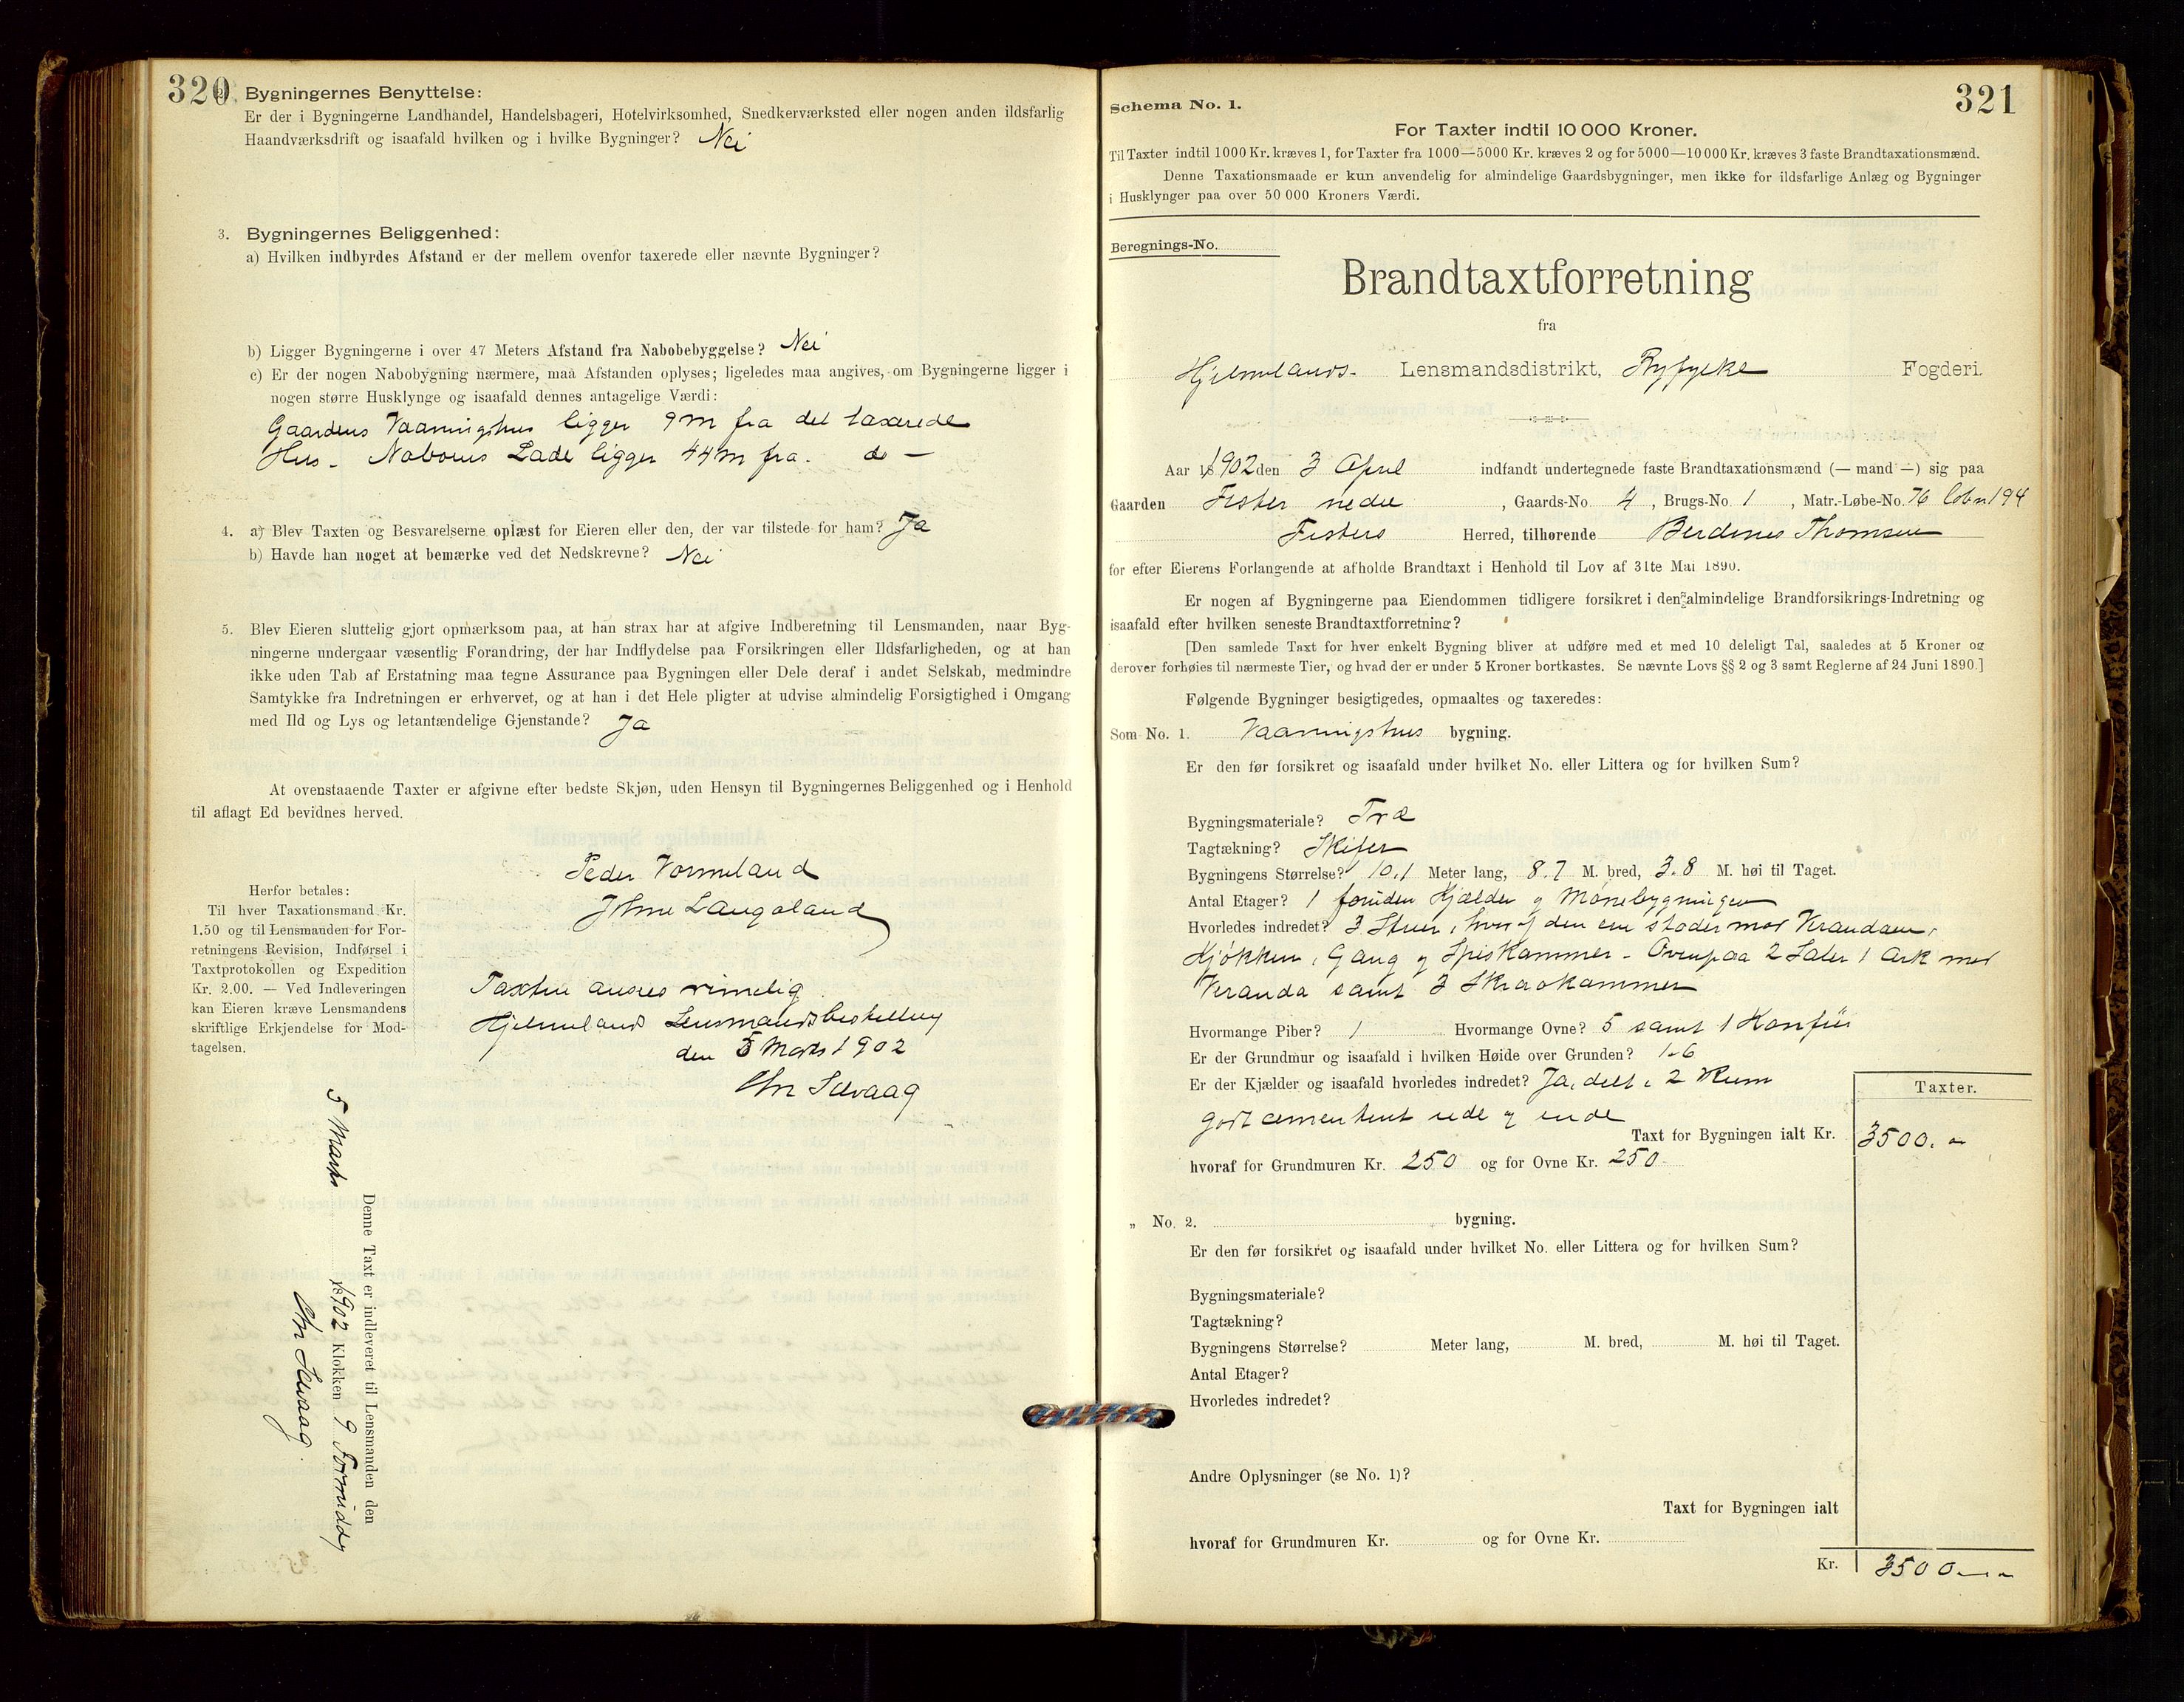 320
2. Bygningernes Benyttelse:
Er der i Bygningerne Landhandel, Handelsbageri, Hotelvirksomhed, Snedkerværksted eller nogen anden ildsfarlig
Haandværksdrift og isaafald hvilken og i hvilke Bygninger? Nei
3. Bygningernes Beliggenhed:
a) Hvilken indbyrdes Afstand er der mellem ovenfor taxerede eller nævnte Bygninger?
b) Ligger Bygningerne i over 47 Meters Afstand fra Nabobebyggelse? Nei
c) Er der nogen Nabobygning nærmere, maa Afstanden oplyses; ligeledes maa angives, om Bygningerne ligger i
nogen større Husklynge og isaafald dennes antagelige Værdi:
Gaardens Vaaningshus ligger 9 m fra det taxerede
Hus - Naboens Lade ligger 44 m fra do -
4. a) Blev Taxten og Besvarelserne oplæst for Eieren eller den, der var tilstede for ham? Ja
b) Havde han noget at bemærke ved det Nedskrevne? Nei
5. Blev Eieren sluttelig gjort opmærksom paa, at han strax har at afgive Indberetning til Lensmanden, naar Byg-
ningerne undergaar væsentlig Forandring, der har Indflydelse paa Forsikringen eller Ildsfarligheden, og at han
ikke uden Tab af Erstatning maa tegne Assurance paa Bygningen eller Dele deraf i andet Selskab, medmindre
Samtykke fra Indretningen er erhvervet, og at han i det Hele pligter at udvise almindelig Forsigtighed i Omgang
med Ild og Lys og letantændelige Gjenstande? Ja
At ovenstaaende Taxter er afgivne efter bedste Skjøn, uden Hensyn til Bygningernes Beliggenhed og i Henhold
til aflagt Ed bevidnes herved.
Peder Vormeland
Johne Langoland
Herfor betales:
Til hver Taxationsmand Kr.
1.50 og til Lensmanden for For-
retningens Revision, Indførsel i
Taxtprotokollen og Expedition
Kr. 2.00. — Ved Indleveringen
kan Eieren kræve Lensmandens
skriftlige Erkjendelse for Mod-
tagelsen.
Taxten ansees rimelig
Hjelmelands Lensmandsbestilling
den 5 Marts 1902
Chr Selvaag
Denne Taxt er indleveret til Lensmanden den
5 Marts 1902 Klokken 9 Formiddg
Chr Selvaag.
321
Schema No. 1.
For Taxter indtil 10 000 Kroner.
Til Taxter indtil 1000 Kr. kræves 1, for Taxter fra 1000—5000 Kr. kræves 2 og for 5000—10 000 Kr. kræves 3 faste Brandtaxationsmænd.
Denne Taxationsmaade er kun anvendelig for almindelige Gaardsbygninger, men ikke for ildsfarlige Anlæg og Bygninger
i Husklynger paa over 50 000 Kroners Værdi.
Beregnings-No.
Brandtaxtforretning
fra
Hjelmelands- Lensmandsdistrikt, Ryfylke Fogderi.
Aar 1902 den 3 April indfandt undertegnede faste Brandtaxationsmænd (— mand —) sig paa
Gaarden Fister nedre , Gaards-No 4 , Brugs-No 1 , Matr.-Løbe-No. 76 194
Fisters Herred, tilhørende Berdines Thomsen
for efter Eierens Forlangende at afholde Brandtaxt i Henhold til Lov af 31te Mai 1890.
Er nogen af Bygningerne paa Eiendommen tidligere forsikret i den almindelige Brandforsikrings-Indretning og
isaafald efter hvilken seneste Brandtaxtforretning?
[Den samlede Taxt for hver enkelt Bygning bliver at udføre med et med 10 deleligt Tal, saaledes at 5 Kroner og
derover forhøies til nærmeste Tier, og hvad der er under 5 Kroner bortkastes. Se nævnte Lovs §§ 2 og 3 samt Reglerne af 24 Juni 1890.]
Følgende Bygninger besigtigedes, opmaaltes og taxeredes:
Som No. 1. Vaaningshus bygning.
Er den før forsikret og isaafald under hvilket No. eller Littera og for hvilken Sum?
Bygningsmateriale? Træ
Tagtækning? Skifer
Bygningens Størrelse? 10.1 Meter lang, 8.7 M. bred, 3.8 M. høi til Taget.
Antal Etager? 1 foruden Kjælder og Mønebygningen
Hvorledes indredet? 3 Stuer, hvoraf den ene støder mod Verandaen,
Kjøkken, Gang og Spiskammer - Ovenpaa 2 Saler 1 Ark med
Veranda samt 3 Skraakammer
Hvormange Piber? 1 Hvormange Ovne? 5 samt 1 Komfür
Er der Grundmur og isaafald i hvilken Høide over Grunden? 1.6
Er der Kjælder og isaafald hvorledes indredet? Ja, delt i 2 Rum
godt cementeret ude og inde
Taxter.
Taxt for Bygningen ialt Kr. 3500. -
hvoraf for Grundmuren Kr. 250 og for Ovne Kr. 250
„ No. 2. bygning.
Er den før forsikret og isaafald under hvilket No. eller Littera og for hvilken Sum?
Bygningsmateriale?
Tagtækning?
Bygningens Størrelse? Meter lang, M. bred, M. høi til Taget.
Antal Etager?
Hvorledes indredet?
Andre Oplysninger (se No. 1)?
Taxt for Bygningen ialt
hvoraf for Grundmuren Kr. og for Ovne Kr.
Kr. 3500 - -